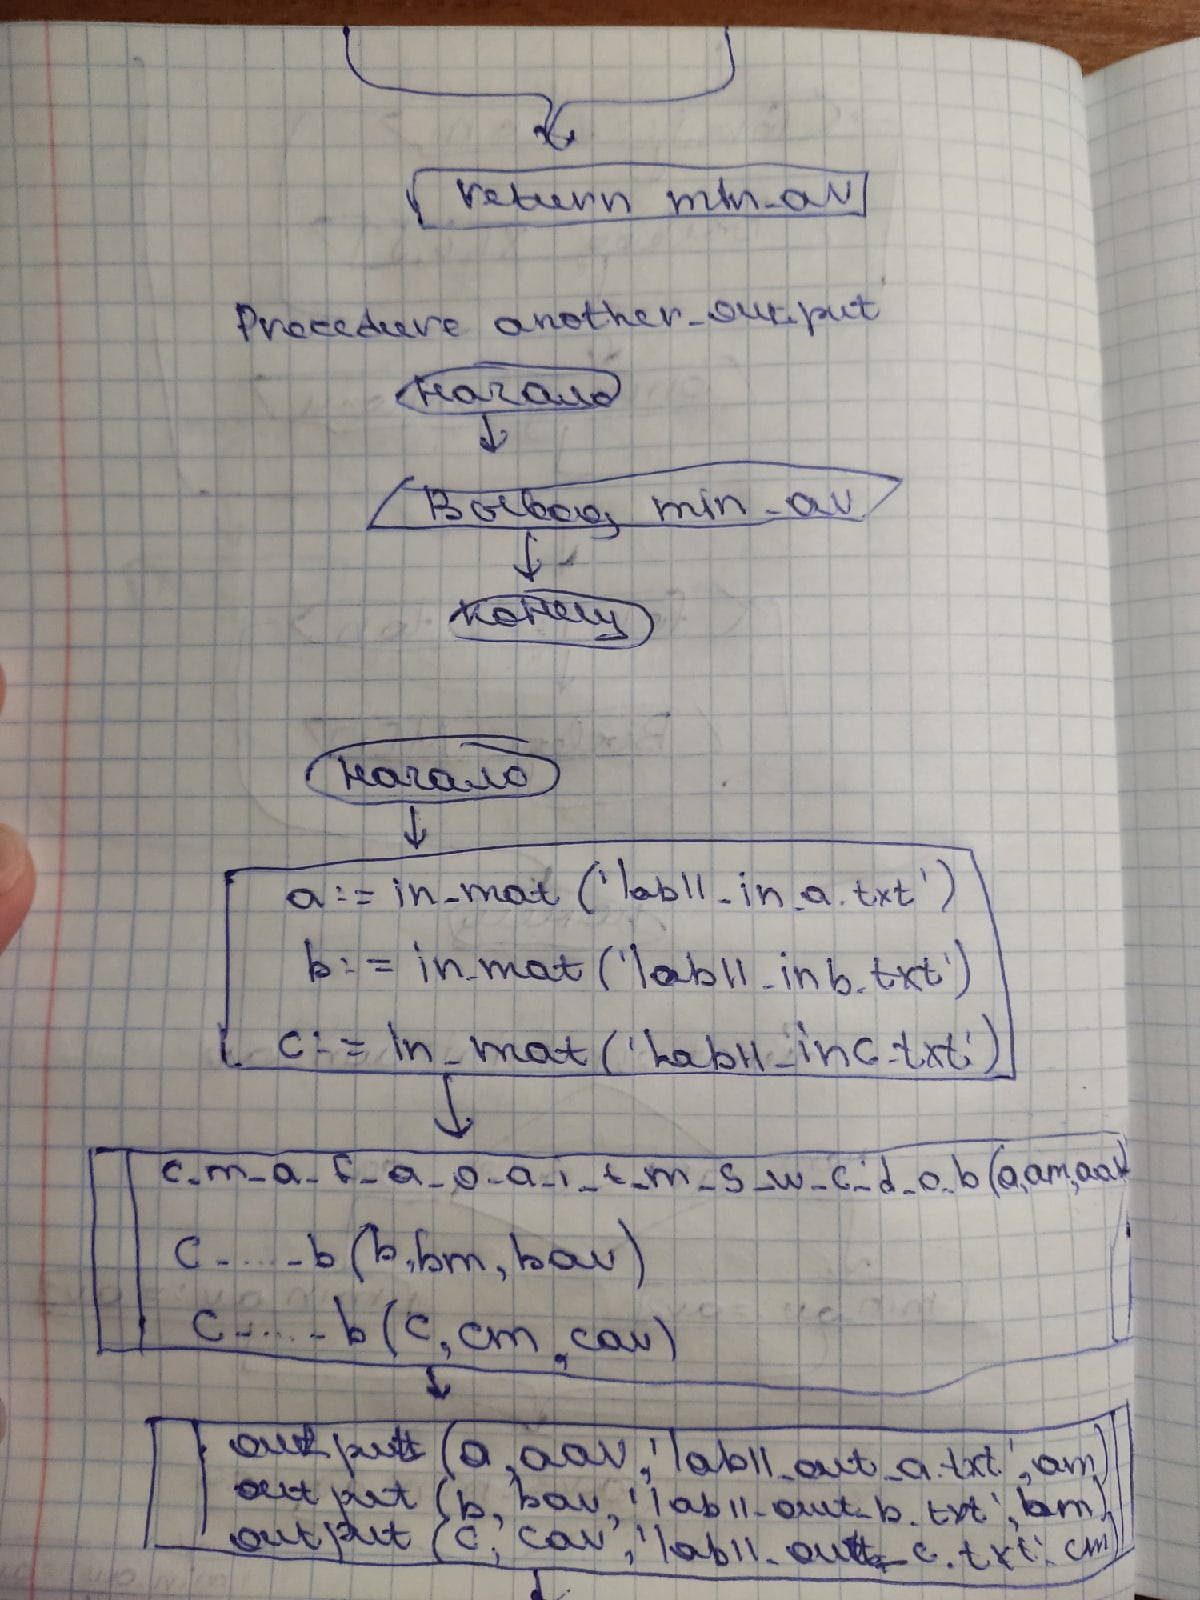 return min_av
Procedure another_output
начало
Вывод min_av
конец
начало
a:= in_mat('lab11_in_a.txt')
b:= in_mat('lab11_inb.txt')
c:= in_mat('lab11_inc.txt')
c_m_a_f_a_o_a_i_t_m_s_w_c_d_o_b(a,am,aav
c_...._b(b,bm,bav)
c_...._b(c,cm,cav)
output(a,aav,'lab11_out_a.txt',am)
output(b,bav,'lab11_out_b.txt',bm)
output(c,cav,'lab11_out_c.txt',cm)